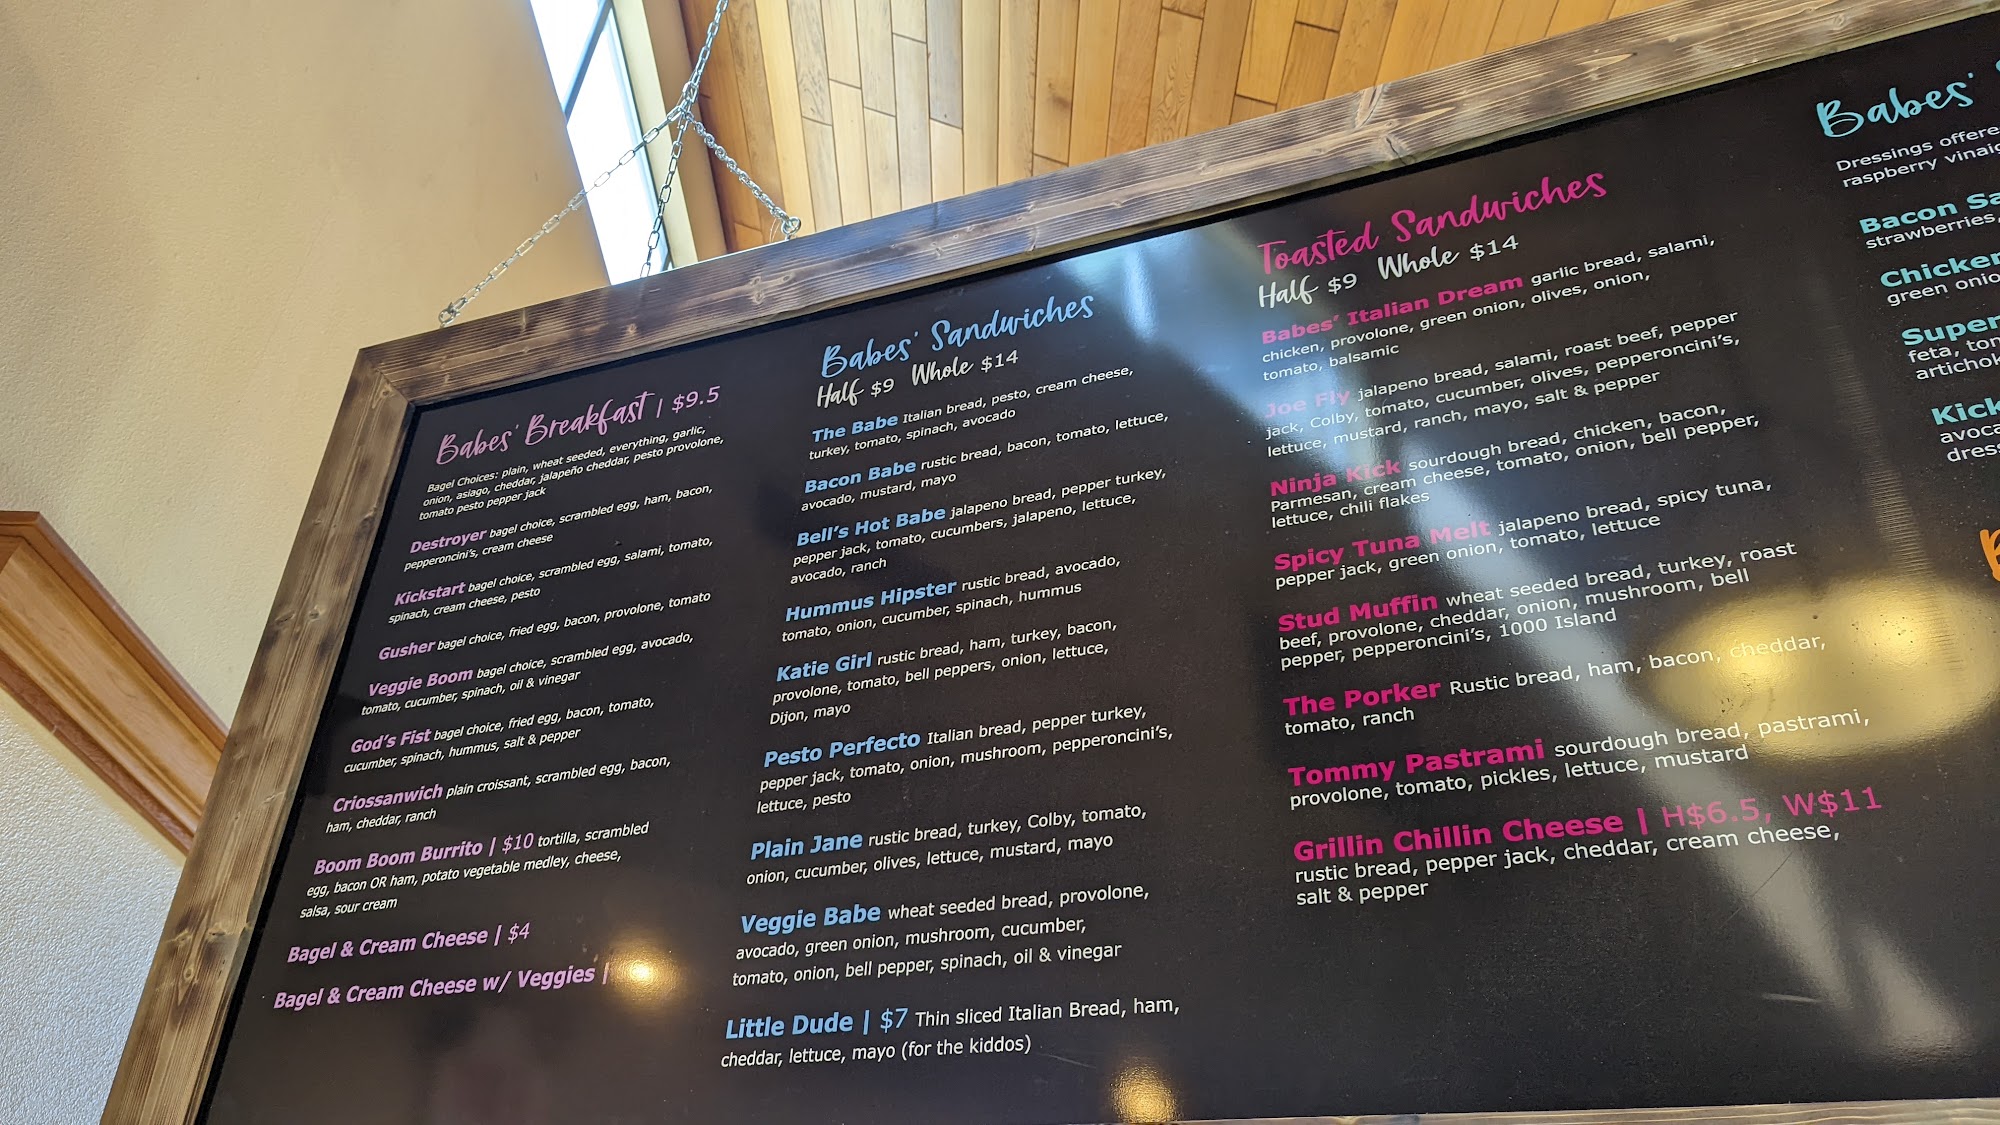 Babes' Breakfast | $9.5
Bagel Choices: plain, wheat seeded, everything, garlic,
onion, asiago, cheddar, jalapeño cheddar, pesto provolone,
tomato pesto pepper jack
Destroyer bagel choice, scrambled egg, ham, bacon,
pepperoncini's, cream cheese
Kickstart bagel choice, scrambled egg, salami, tomato,
spinach, cream cheese, pesto
Gusher bagel choice, fried egg, bacon, provolone, tomato
Veggie Boom bagel choice, scrambled egg, avocado,
tomato, cucumber, spinach, oil & vinegar
God's Fist bagel choice, fried egg, bacon, tomato,
cucumber, spinach, hummus, salt & pepper
Criossanwich plain croissant, scrambled egg, bacon,
ham, cheddar, ranch
Boom Boom Burrito | $10 tortilla, scrambled
egg, bacon OR ham, potato vegetable medley, cheese,
salsa, sour cream
Bagel & Cream Cheese | $4
Bagel & Cream Cheese w/ Veggies |
Babes' Sandwiches
Half $9 Whole $14
The Babe Italian bread, pesto, cream cheese,
turkey, tomato, spinach, avocado
Bacon Babe rustic bread, bacon, tomato, lettuce,
avocado, mustard, mayo
Bell's Hot Babe jalapeno bread, pepper turkey,
pepper jack, tomato, cucumbers, jalapeno, lettuce,
avocado, ranch
Hummus Hipster rustic bread, avocado,
tomato, onion, cucumber, spinach, hummus
Katie Girl rustic bread, ham, turkey, bacon,
provolone, tomato, bell peppers, onion, lettuce,
Dijon, mayo
Pesto Perfecto Italian bread, pepper turkey,
pepper jack, tomato, onion, mushroom, pepperoncini's,
lettuce, pesto
Plain Jane rustic bread, turkey, Colby, tomato,
onion, cucumber, olives, lettuce, mustard, mayo
Veggie Babe wheat seeded bread, provolone,
avocado, green onion, mushroom, cucumber,
tomato, onion, bell pepper, spinach, oil & vinegar
Little Dude | $7 Thin sliced Italian Bread, ham,
cheddar, lettuce, mayo (for the kiddos)
Toasted Sandwiches
Half $9 Whole $14
Babes' Italian Dream garlic bread, salami,
chicken, provolone, green onion, olives, onion,
tomato, balsamic
Joe Fly jalapeno bread, salami, roast beef, pepper
jack, Colby, tomato, cucumber, olives, pepperoncini's,
lettuce, mustard, ranch, mayo, salt & pepper
Ninja Kick sourdough bread, chicken, bacon,
Parmesan, cream cheese, tomato, onion, bell pepper,
lettuce, chili flakes
Spicy Tuna Melt jalapeno bread, spicy tuna,
pepper jack, green onion, tomato, lettuce
Stud Muffin wheat seeded bread, turkey, roast
beef, provolone, cheddar, onion, mushroom, bell
pepper, pepperoncini's, 1000 Island
The Porker Rustic bread, ham, bacon, cheddar,
tomato, ranch
Tommy Pastrami sourdough bread, pastrami,
provolone, tomato, pickles, lettuce, mustard
Grillin Chillin Cheese | H$6.5, W$11
rustic bread, pepper jack, cheddar, cream cheese,
salt & pepper
Babes'
Dressings
raspberry
Bacon
strawberries,
Chicken
green
feta,